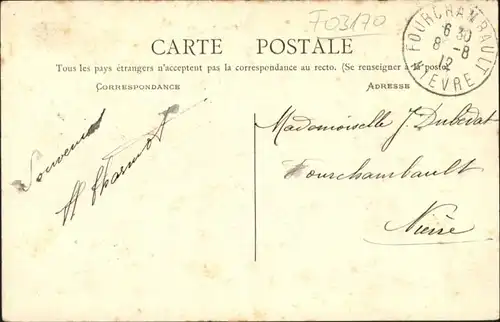 F03170
FOURCHAMBAULT
6 30
8 -8
12
NIEVRE
CARTE POSTALE
Tous les pays étrangers n'acceptent pas la correspondance au recto. (Se renseigner à la poste)
CORRESPONDANCE
ADRESSE
Souvenir
Mademoiselle J. Dubedat
Fourchambault
Nièvre